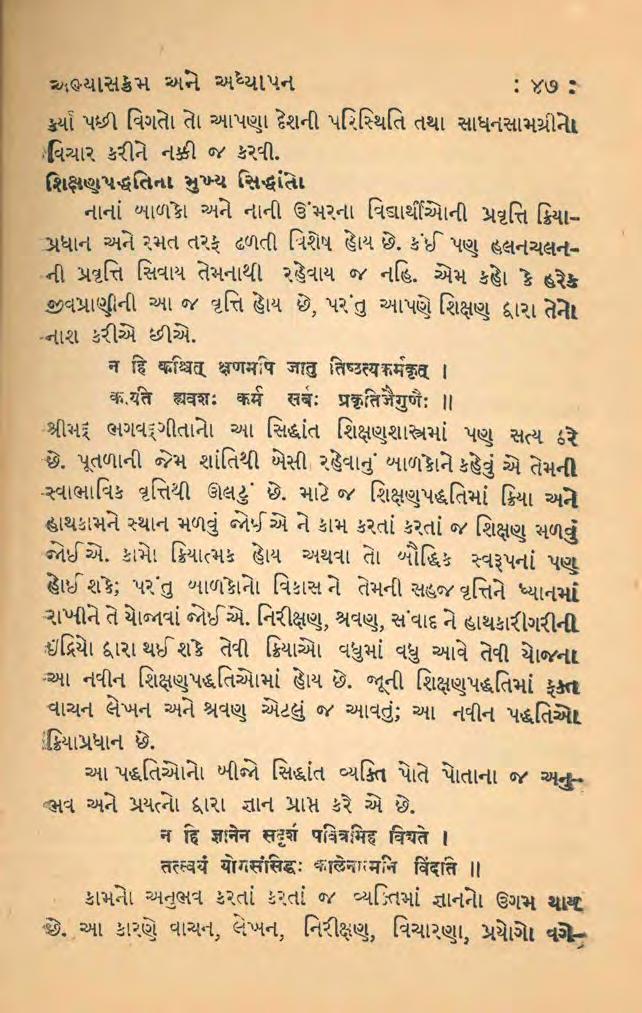 અભ્યાસક્રમ અને અધ્યાપન : ૪૭ :
કર્યા પછી વિગતો તો આપણા દેશની પરિસ્થિતિ તથા સાધનસામગ્રીનો
વિચાર કરીને નક્કી જ કરવી.
શિક્ષણપદ્ધતિના મુખ્ય સિદ્ધાંતો
નાનાં બાળકો અને નાની ઉંમરના વિદ્યાર્થીઓની પ્રવૃત્તિ ક્રિયા-
પ્રધાન અને રમત તરફ ઢળતી વિશેષ હોય છે. કંઈ પણ હલનચલન-
ની પ્રવૃત્તિ સિવાય તેમનાથી રહેવાય જ નહિ. એમ કહો કે હરેક
જીવપ્રાણીની આ જ વૃત્તિ હોય છે, પરંતુ આપણે શિક્ષણ દ્વારા તેનો
નાશ કરીએ છીએ.
न हि कश्चित् क्षणमपि जातु तिष्ठत्यकर्मकृत् ।
का.यते ह्यवशः कर्म सर्वः प्रकृतिजैगुणैः ॥
શ્રીમદ્ ભગવદ્ગીતાનો આ સિદ્ધાંત શિક્ષણશાસ્ત્રમાં પણ સત્ય ઠરે
છે. પૂતળાની જેમ શાંતિથી બેસી રહેવાનું બાળકોને કહેવું એ તેમની
સ્વાભાવિક વૃત્તિથી ઊલટું છે. માટે જ શિક્ષણપદ્ધતિમાં ક્રિયા અને
હાથકામને સ્થાન મળવું જોઈએ ને કામ કરતાં કરતાં જ શિક્ષણ મળવું
જોઈએ. કામો ક્રિયાત્મક હોય અથવા તો બૌદ્ધિક સ્વરૂપનાં પણ
હોઈ શકે; પરંતુ બાળકોનો વિકાસ ને તેમની સહજ વૃત્તિને ધ્યાનમાં
રાખીને તે યોજાવાં જોઈએ. નિરીક્ષણ, શ્રવણ, સંવાદ ને હાથકારીગરીની
ઇંદ્રિયો દ્વારા થઈ શકે તેવી ક્રિયાઓ વધુમાં વધુ આવે તેવી યોજના
આ નવીન શિક્ષણપદ્ધતિઓમાં હોય છે. જૂની શિક્ષણપદ્ધતિમાં ફક્ત
વાચન લેખન અને શ્રવણ એટલું જ આવતું; આ નવીન પદ્ધતિઓ
ક્રિયાપ્રધાન છે.
આ પદ્ધતિઓનો બીજો સિદ્ધાંત વ્યક્તિ પોતે પોતાના જ અનુ-
ભવ અને પ્રયત્નો દ્વારા જ્ઞાન પ્રાપ્ત કરે એ છે.
न हि ज्ञानेन सदृशं पवित्रमिह विद्यते ।
तत्स्वयं योगसंसिद्धः कालेनात्मनि विंदति ॥
કામનો અનુભવ કરતાં કરતાં જ વ્યક્તિમાં જ્ઞાનનો ઉગમ થાય
છે. આ કારણે વાચન, લેખન, નિરીક્ષણ, વિચારણા, પ્રયોગો વગે-